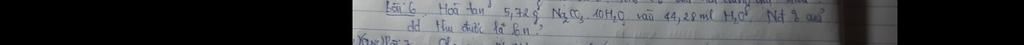 Bài 6. Hoà tan 5,72g Na2CO3.10H2O vào 44,28ml H2O. Nồng độ
dd thu được là bn?